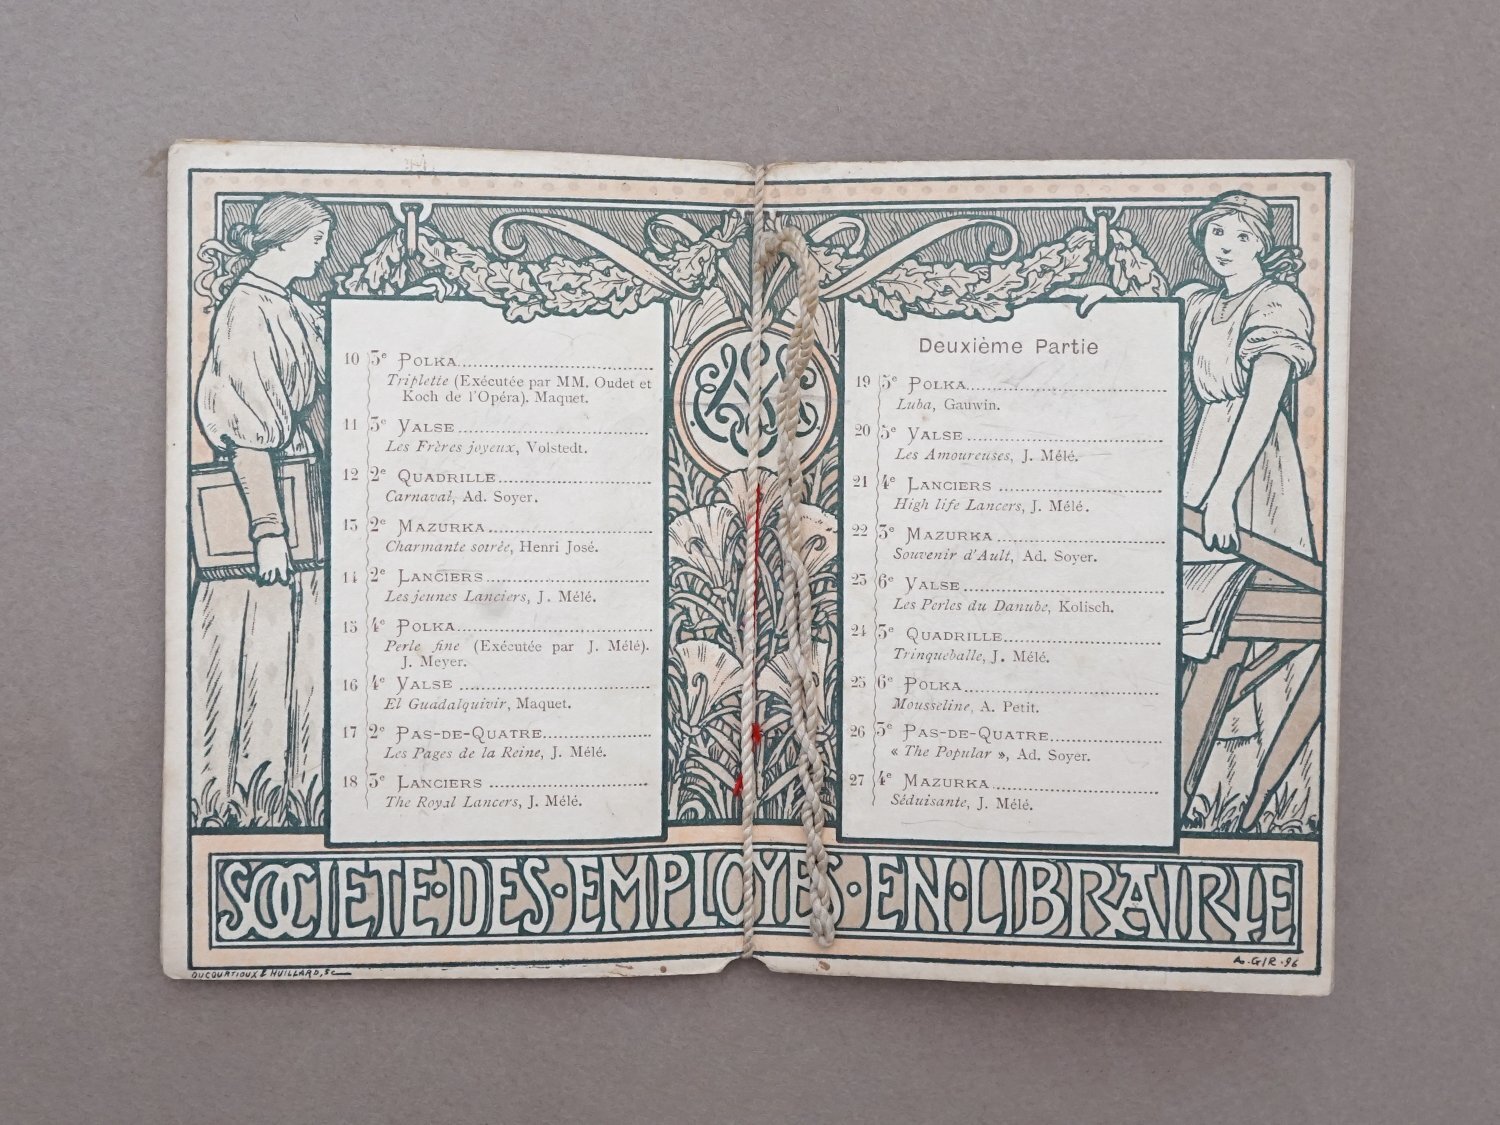 10 3e POLKA
Triplette (Exécutée par MM. Oudet et
Koch de l'Opéra). Maquet.
11 3e VALSE
Les Frères joyeux, Volstedt.
12 2e QUADRILLE
Carnaval, Ad. Soyer.
13 2e MAZURKA
Charmante soirée, Henri José.
14 2e LANCIERS
Les jeunes Lanciers, J. Mélé.
15 4e POLKA
Perle fine (Exécutée par J. Mélé).
J. Meyer.
16 4e VALSE
El Guadalquivir, Maquet.
17 2e PAS-DE-QUATRE
Les Pages de la Reine, J. Mélé.
18 3e LANCIERS
The Royal Lancers, J. Mélé.
Deuxième Partie
19 5e POLKA
Luba, Gauwin.
20 5e VALSE
Les Amoureuses, J. Mélé.
21 4e LANCIERS
High life Lancers, J. Mélé.
22 3e MAZURKA
Souvenir d'Ault, Ad. Soyer.
23 6e VALSE
Les Perles du Danube, Kolisch.
24 3e QUADRILLE
Trinqueballe, J. Mélé.
25 6e POLKA
Mousseline, A. Petit.
26 3e PAS-DE-QUATRE
« The Popular », Ad. Soyer.
27 4e MAZURKA
Séduisante, J. Mélé.
SOCIETE·DES·EMPLOYES·EN·LIBRAIRIE
DUCOURTIOUX & HUILLARD, Sc
A. GIR. 96